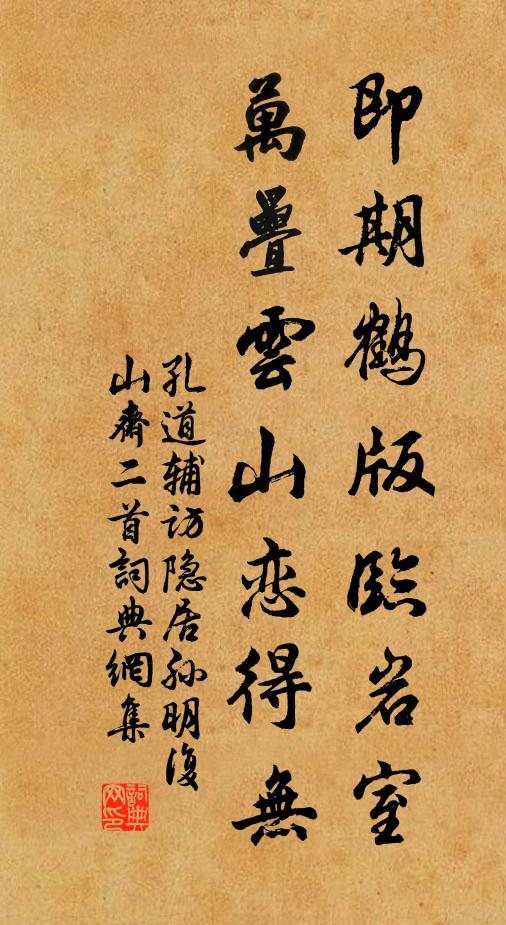 即期鹤版臨岩室
萬疊雲山恋得無
孔道辅访隐居孙明復
山齋二首詞典網集
詞典網印